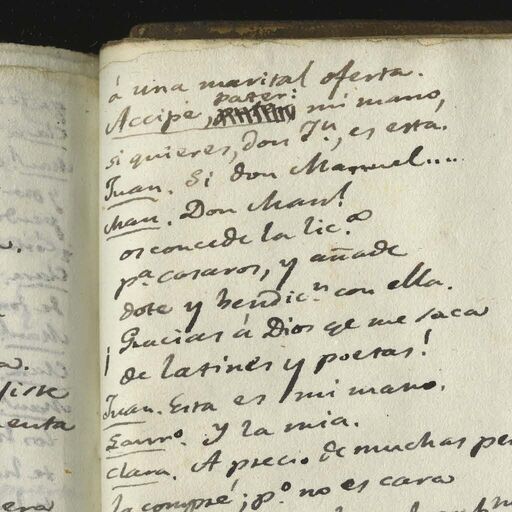 á una marital oferta.
pater:
Accipe, mi mano,
si quieres, don Jn, es esta.
Juan. Si don Manuel....
Man. Don Manl!
os concede la lic.a
pa casaros, y añade
dote y bendic.n con ella.
¡Gracias á Dios qe me saca
de latines y poetas!
Juan. Esta es mi mano.
y la mia.
Clara. A precio de muchas pe
la compré; po no es cara
a.
enta
era